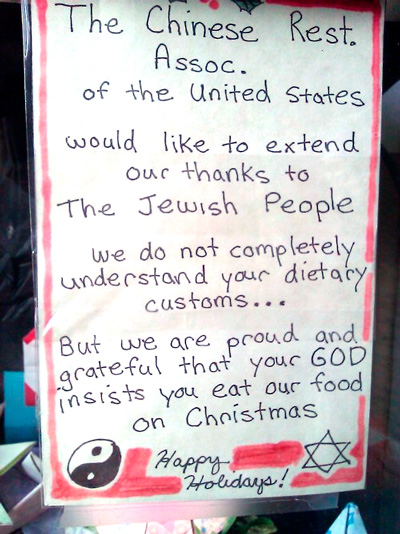 The Chinese Rest.
Assoc.
of the United States
would like to extend
our thanks to
The Jewish People
we do not completely
understand your dietary
customs...
But we are proud and
grateful that your GOD
insists you eat our food
on Christmas
Happy
Holidays!